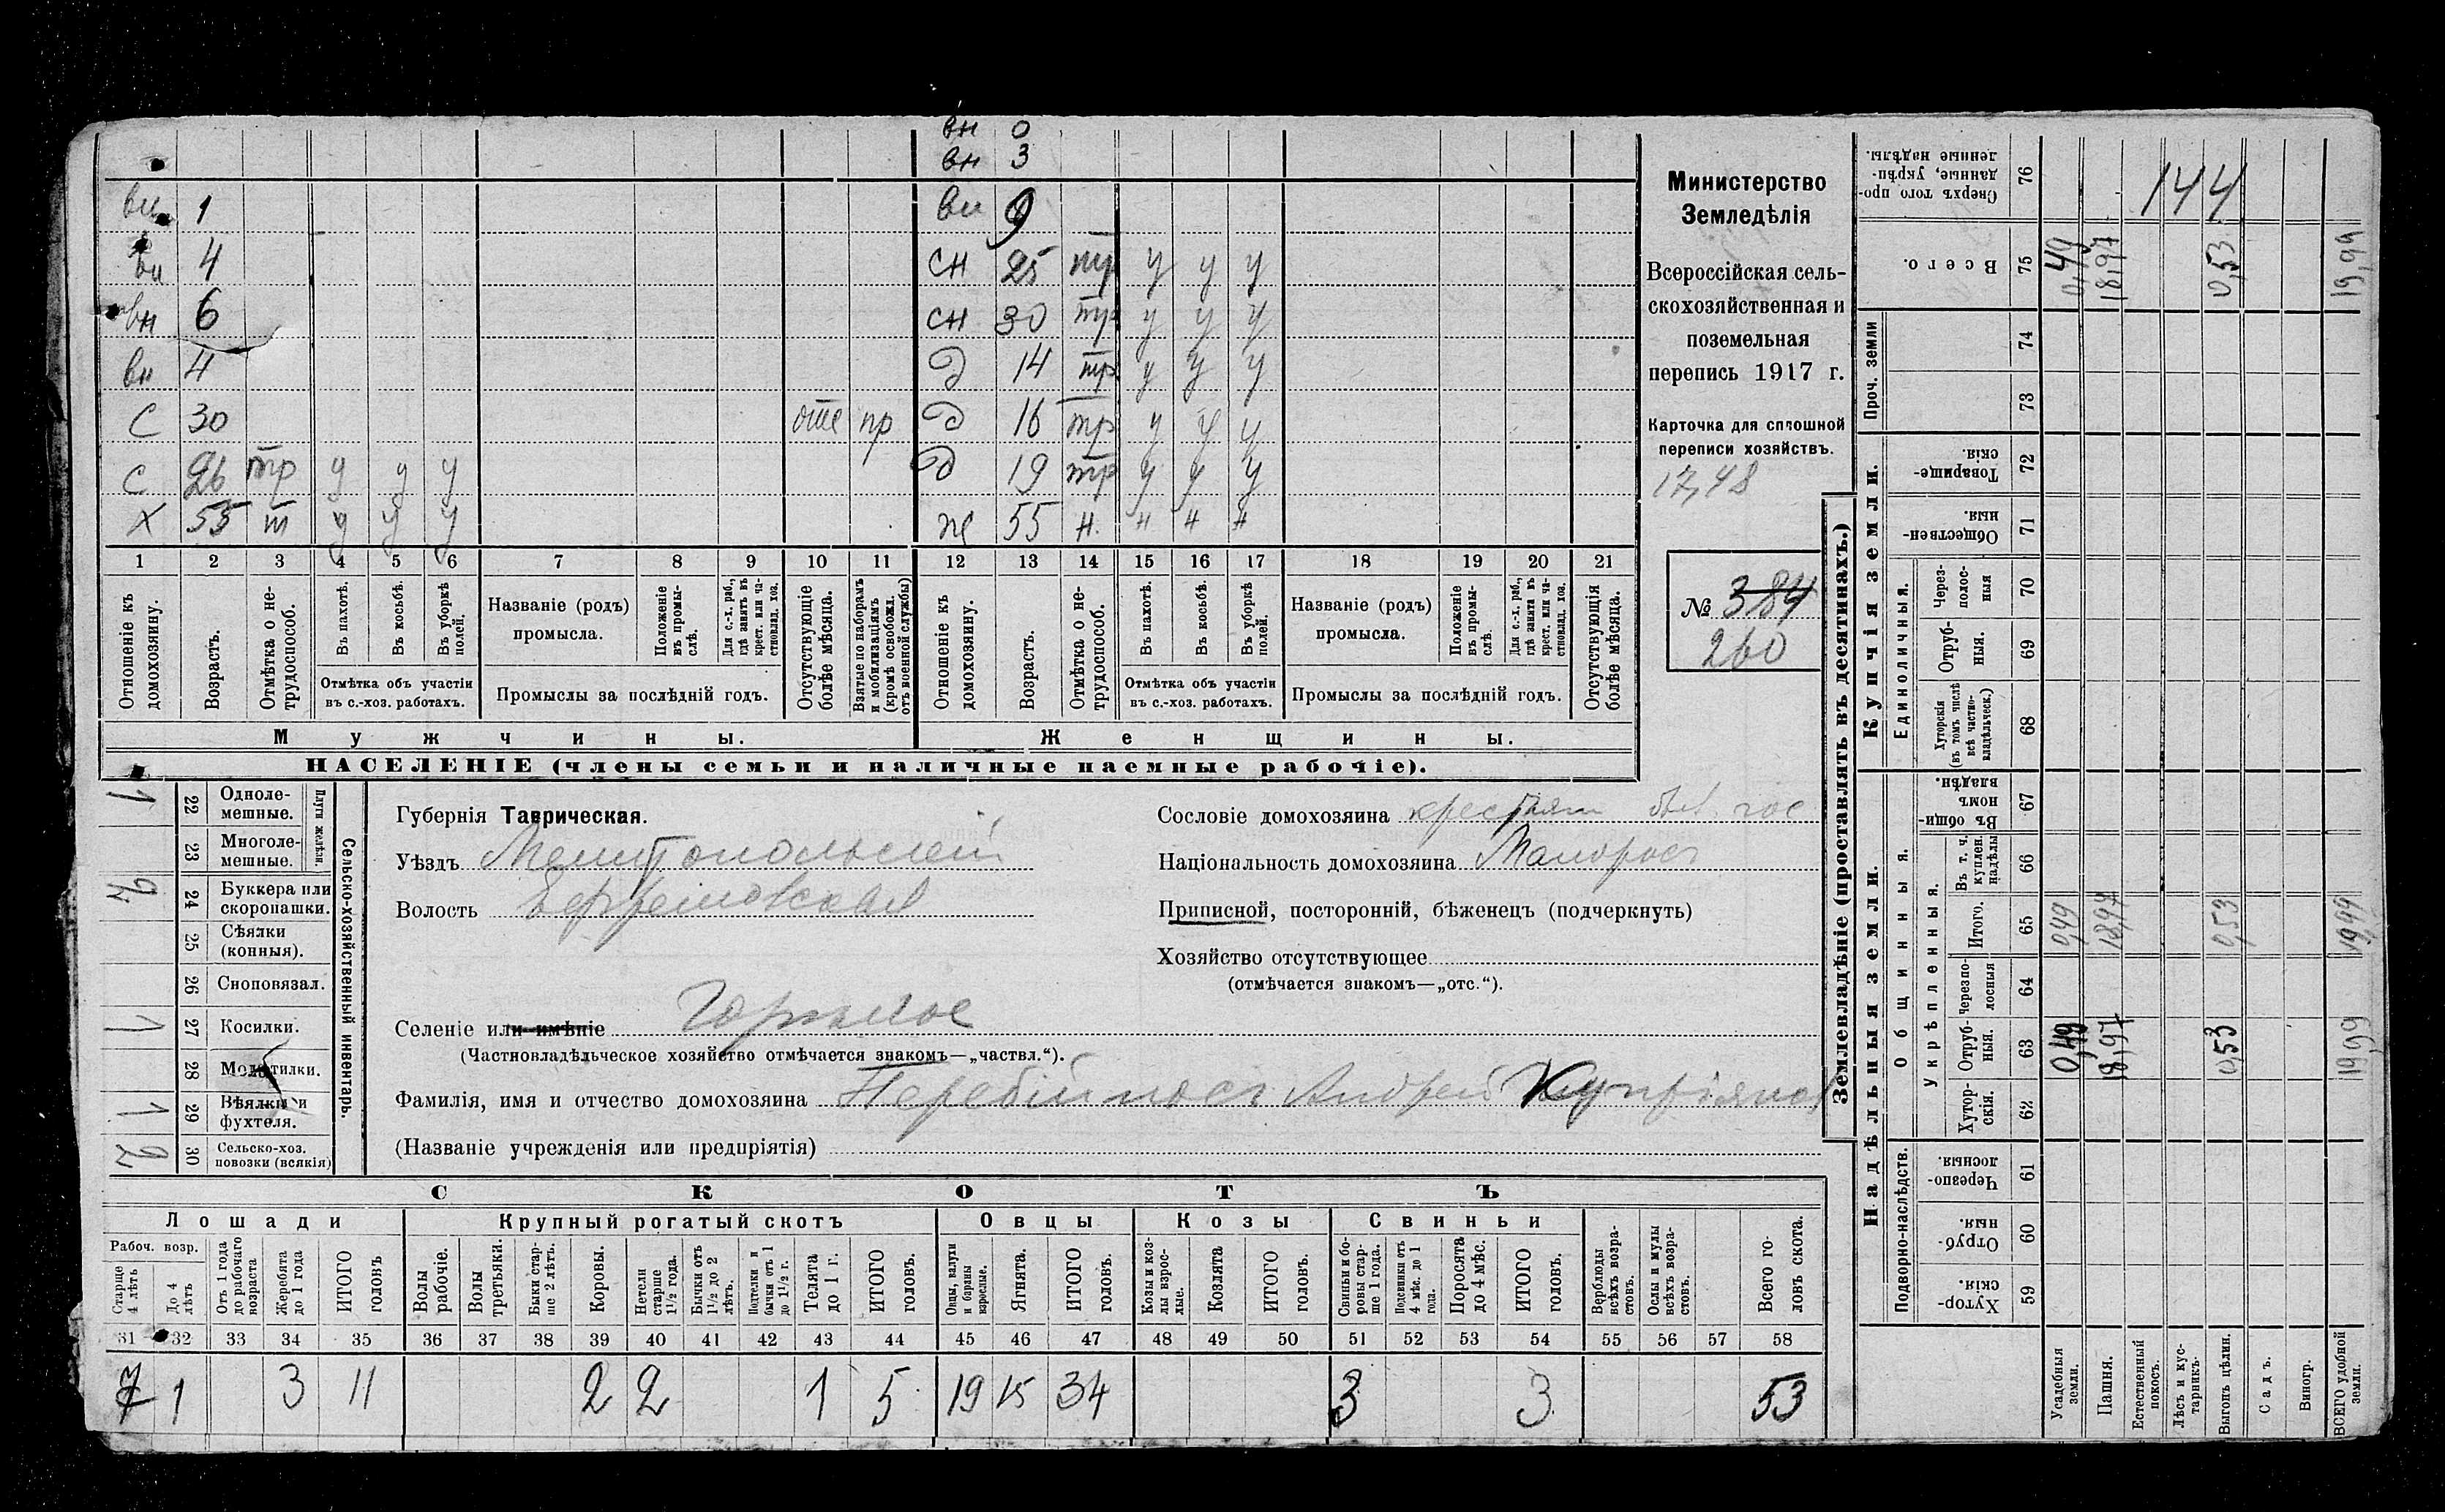 вн 0
вн 3
вн 1 вн 9
вн 4 сн 25 тр у у у
вн 6 сн 30 тр у у у
вн 4 д 14 тр у у у
с 30 отс пр д 16 тр у у у
с 26 тр у у у д 19 тр у у у
х 55 т у у у ж 55 н. н н н
1 2 3 4 5 6 7 8 9 10 11 12 13 14 15 16 17 18 19 20 21
Отношеніе къ домохозяину.
Возрастъ.
Отмѣтка о нетрудоспособ.
Въ пахотѣ.
Въ косьбѣ.
Въ уборкѣ полей.
Отмѣтка объ участіи
въ с.-хоз. работахъ.
Названіе (родъ)
промысла.
Положеніе въ промыслѣ.
Для с.-х. раб., гдѣ занятъ въ крест. или частновлад. хоз.
Промыслы за послѣдній годъ.
Отсутствующіе болѣе мѣсяца.
Взятые по наборамъ и мобилизаціямъ (кромѣ освобожд. отъ военной службы)
Отношеніе къ домохозяину.
Возрастъ.
Отмѣтка о нетрудоспособ.
Въ пахотѣ.
Въ косьбѣ.
Въ уборкѣ полей.
Отмѣтка объ участіи
въ с.-хоз. работахъ.
Названіе (родъ)
промысла.
Положеніе въ промыслѣ.
Для с.-х. раб., гдѣ занята въ крест. или частновлад. хоз.
Промыслы за послѣдній годъ.
Отсутствующія болѣе мѣсяца.
Мужчины. Женщины.
НАСЕЛЕНІЕ (члены семьи и наличные наемные рабочіе).
Министерство
Земледѣлія
Всероссійская сель-
скохозяйственная и
поземельная
перепись 1917 г.
Карточка для сплошной
переписи хозяйствъ.
17,48
№ 384
260
Сельско-хозяйственный инвентарь.
Плуги желѣзн.
1 22 Одноле-
мешные.
23 Многоле-
мешные.
24 Буккера или
скоропашки.
25 Сѣялки
(конныя).
26 Сноповязал.
1 27 Косилки.
28 Молотилки.
1 29 Вѣялки и
фухтеля.
2 30 Сельско-хоз.
повозки (всякія)
Губернія Таврическая.
Уѣздъ Мелитопольскій
Волость
Селеніе или имѣніе Горькое
(Частновладѣльческое хозяйство отмѣчается знакомъ—„частвл.“).
Фамилія, имя и отчество домохозяина Перебійносъ Андрей Купріянов
(Названіе учрежденія или предпріятія)
Сословіе домохозяина крестьян был. гос
Національность домохозяина Малорос
Приписной, посторонній, бѣженецъ (подчеркнуть)
Хозяйство отсутствующее
(отмѣчается знакомъ—„отс.“).
СКОТЪ
Лошади Крупный рогатый скотъ Овцы Козы Свиньи
Рабоч. возр.
Старше 4 лѣтъ
До 4 лѣтъ
Отъ 1 года до рабочаго возраста
Жеребята до 1 года
ИТОГО головъ
Волы рабочіе.
Волы третьяки.
Быки старше 2 лѣтъ.
Коровы.
Нетели старше 1½ года.
Бычки отъ 1½ до 2 лѣтъ.
Подтелки и бычки отъ 1 до 1½ г.
Телята до 1 г.
ИТОГО головъ.
Овцы, валухи и бараны взрослые.
Ягнята.
ИТОГО головъ.
Козы и козлы взрослые.
Козлята
ИТОГО головъ.
Свиньи и боровы старше 1 года.
Подсвинки отъ 4 мѣс. до 1 года.
Поросята до 4 мѣс.
ИТОГО головъ.
Верблюды всѣхъ возрастовъ.
Ослы и мулы всѣхъ возрастовъ.
Всего головъ скота.
31 32 33 34 35 36 37 38 39 40 41 42 43 44 45 46 47 48 49 50 51 52 53 54 55 56 57 58
7 1 3 11 2 2 1 5 19 15 34 3 3 53
Землевладѣніе (проставлять въ десятинахъ.)
Купчія земли.
Надѣльныя земли.
76 Сверхъ того проданные, укрѣпленные надѣлы. 144
75 Всего. 0,49 18,97 0,53 19,99
Проч. земли
74
73
72 Товарищескія.
71 Общественныя.
Единоличныя.
70 Черезполосныя
69 Отрубныя.
68 Хуторскія (въ томъ числѣ всѣ частновладѣльческ.)
Общинныя.
67 Въ общинномъ владѣн.
Укрѣпленныя.
66 Въ т. ч. куплен. надѣлы
65 Итого. 0,49 18,97 0,53 19,99
64 Черезполосныя
63 Отрубныя. 0,49 18,97 0,53 19,99
62 Хуторскія.
Подворно-наслѣдств.
61 Черезполосныя.
60 Отрубныя.
59 Хуторскія.
Усадебныя земли.
Пашня.
Естественный покосъ.
Лѣсъ и кустарникъ.
Выгонъ цѣлин.
Садъ.
Виногр.
ВСЕГО удобной земли.